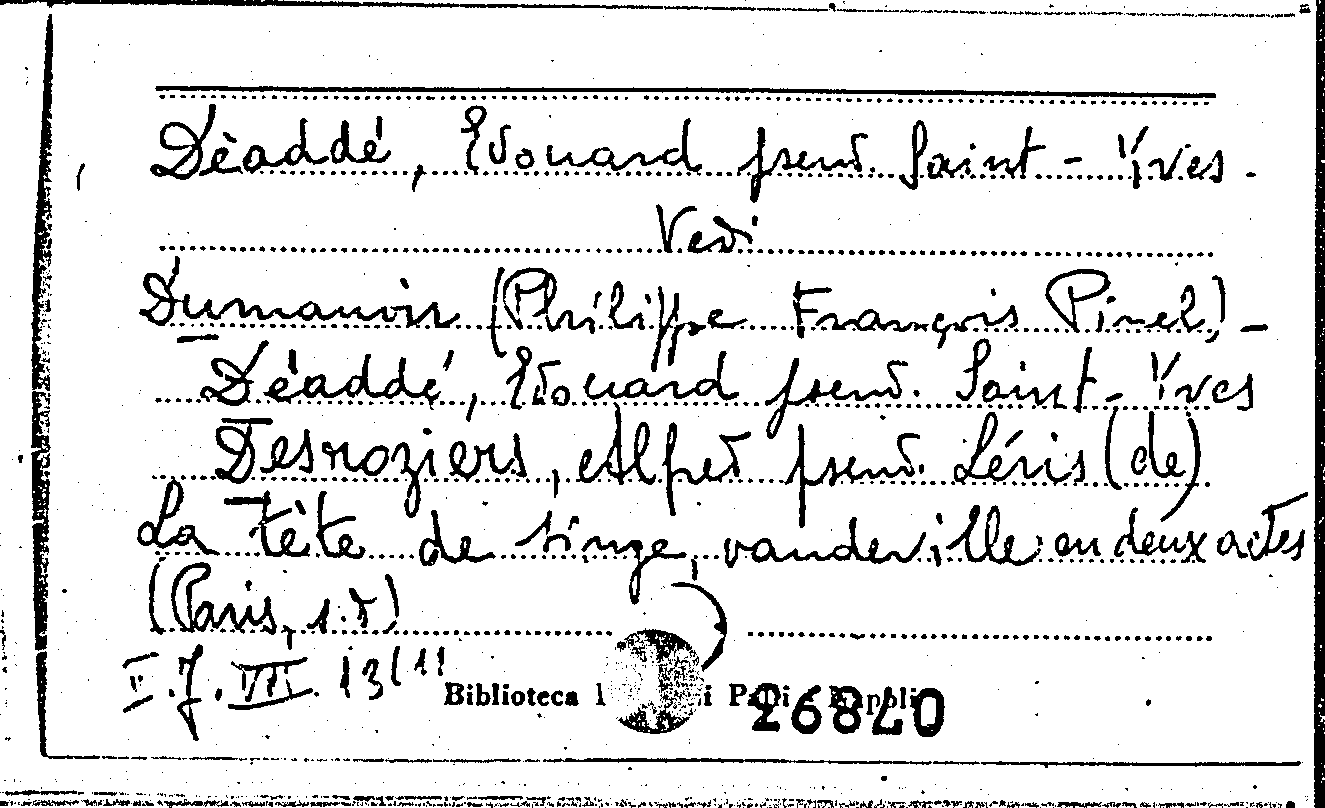 Dèaddé, Edouard pseud. Saint-Yves.
Vedi
Dumanoir (Philippe François Pinel) -
Déaddé, Edouard pseud. Saint-Yves
Desroziers, Alfred pseud. Léris (de)
La tète de singe, vaudeville en deux actes
(Paris, s.d)
II.J.VII.13(11
Biblioteca
26840